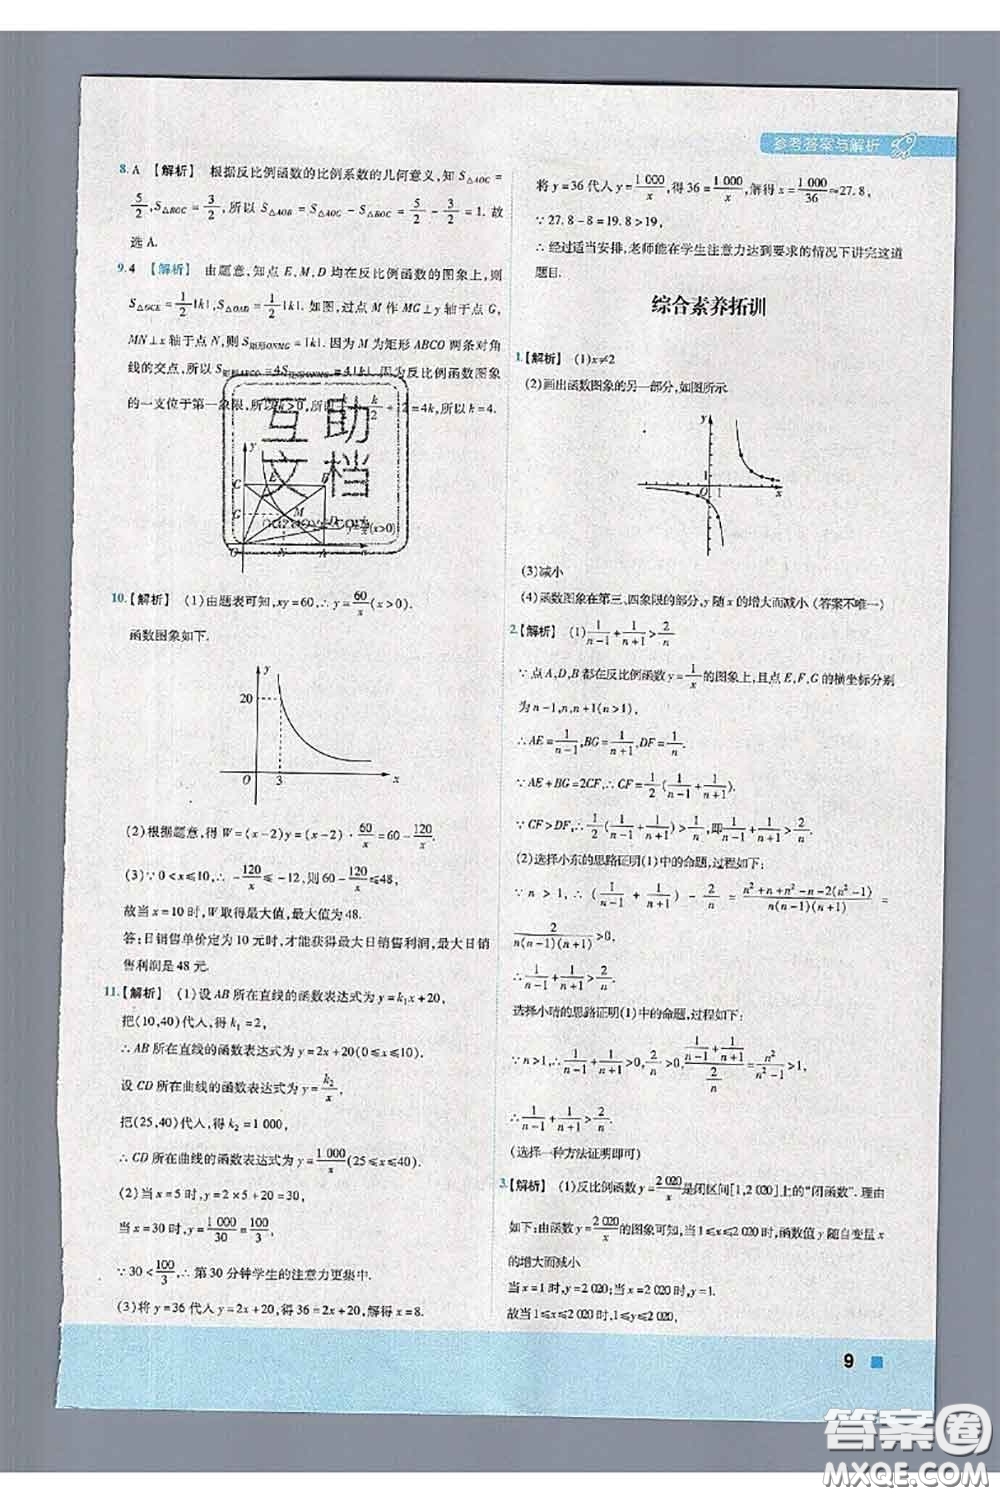 参考答案与解析
8. A 【解析】 根据反比例函数的比例系数的几何意义,知 S△AOC =
5/2, S△BOC = 3/2, 所以 S△AOB = S△AOC − S△BOC = 5/2 − 3/2 = 1. 故
选 A.
9. 4 【解析】 由题意,知点 E,M,D 均在反比例函数的图象上,则
S△OCE = 1/2|k|, S△OAD = 1/2|k|. 如图,过点 M 作 MG⊥y 轴于点 G,
MN⊥x 轴于点 N,则 S矩形ONMG = |k|. 因为 M 为矩形 ABCO 两条对角
线的交点,所以 S矩形ABCO = 4S矩形ONMG = 4|k|. 因为反比例函数图象
的一支位于第一象限,所以 k>0,所以 k/2 + k/2 + 12 = 4k,所以 k = 4.
互助
文档
y
C E B
G M
D
y = k/x (x>0)
O N A x
10. 【解析】 (1)由题表可知, xy = 60, ∴ y = 60/x (x > 0).
函数图象如下.
y
20
O 3 x
(2)根据题意,得 W = (x−2)y = (x−2) · 60/x = 60 − 120/x.
(3)∵ 0 < x ≤ 10, ∴ −120/x ≤ −12, 则 60 − 120/x ≤ 48,
故当 x = 10 时, W 取得最大值,最大值为 48.
答:日销售单价定为 10 元时,才能获得最大日销售利润,最大日销
售利润是 48 元.
11. 【解析】 (1)设 AB 所在直线的函数表达式为 y = k₁x + 20,
把(10,40)代入,得 k₁ = 2,
∴ AB 所在直线的函数表达式为 y = 2x + 20(0 ≤ x ≤ 10).
设 CD 所在曲线的函数表达式为 y = k₂/x,
把(25,40)代入,得 k₂ = 1 000,
∴ CD 所在曲线的函数表达式为 y = 1 000/x (25 ≤ x ≤ 40).
(2)当 x = 5 时, y = 2×5 + 20 = 30,
当 x = 30 时, y = 1 000/30 = 100/3,
∵ 30 < 100/3, ∴ 第 30 分钟学生的注意力更集中.
(3)将 y = 36 代入 y = 2x + 20,得 36 = 2x + 20,解得 x = 8.
将 y = 36 代入 y = 1 000/x,得 36 = 1 000/x,解得 x = 1 000/36 ≈ 27.8,
∵ 27.8 − 8 = 19.8 > 19,
∴ 经过适当安排,老师能在学生注意力达到要求的情况下讲完这道
题目.
综合素养拓训
1. 【解析】 (1)x≠2
(2)画出函数图象的另一部分,如图所示.
y
1
O 1 x
(3)减小
(4)函数图象在第三、四象限的部分, y 随 x 的增大而减小 (答案不唯一)
2. 【解析】 (1) 1/(n−1) + 1/(n+1) > 2/n
∵ 点 A,D,B 都在反比例函数 y = 1/x 的图象上,且点 E,F,G 的横坐标分别
为 n−1,n,n+1(n>1),
∴ AE = 1/(n−1), BG = 1/(n+1), DF = 1/n.
∵ AE + BG = 2CF, ∴ CF = 1/2 (1/(n−1) + 1/(n+1)).
∵ CF > DF, ∴ 1/2 (1/(n−1) + 1/(n+1)) > 1/n, 即 1/(n−1) + 1/(n+1) > 2/n.
(2)选择小东的思路证明(1)中的命题,过程如下:
∵ n > 1, ∴ (1/(n−1) + 1/(n+1)) − 2/n = (n²+n+n²−n−2(n²−1))/(n(n−1)(n+1)) =
2/(n(n−1)(n+1)) > 0,
∴ 1/(n−1) + 1/(n+1) > 2/n.
选择小晴的思路证明(1)中的命题,过程如下:
∵ n>1, ∴ 1/(n−1) + 1/(n+1) > 0, 2/n > 0, (1/(n−1) + 1/(n+1))/(2/n) = n²/(n²−1) > 1,
∴ 1/(n−1) + 1/(n+1) > 2/n.
(选择一种方法证明即可)
3. 【解析】 (1)反比例函数 y = 2 020/x 是闭区间[1,2 020]上的“闭函数”. 理由
如下:由函数 y = 2 020/x 的图象可知,当 1≤x≤2 020 时,函数值 y 随自变量 x
的增大而减小
当 x = 1 时, y = 2 020;当 x = 2 020 时, y = 1.
故当 1≤x≤2 020 时, 1≤y≤2 020,
9
答案圈
MXQE.COM